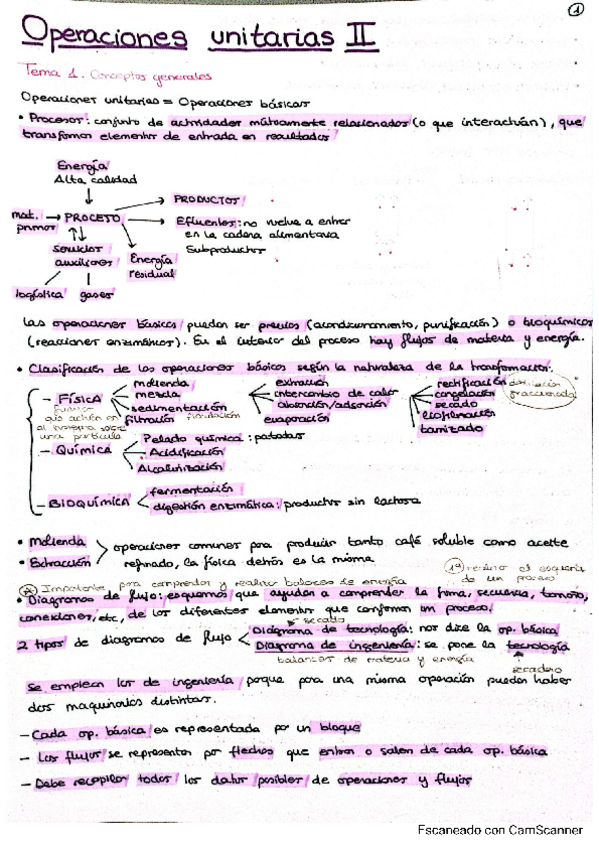 1
Operaciones unitarias II
Tema 1. Conceptos generales
Operaciones unitarias = Operaciones básicas
• Procesos: conjunto de actividades mútuamente relacionadas (o que interactúan), que
transforman elementos de entrada en resultados
Energía
Alta calidad
→ PRODUCTOS
mat. → PROCESO → Efluentes: no vuelve a entrar
primas
en la cadena alimentaria
servicios
Subproductos
auxiliares
Energía
residual
logística gases
Las operaciones básicas pueden ser previas (acondicionamiento, purificación) o bioquímicas
(reacciones enzimáticas). En el interior del proceso hay flujos de materia y energía.
• Clasificación de las operaciones básicas según la naturaleza de la transformación:
- FÍSICA
molienda
mezcla
sedimentación
filtración flotación
extracción
intercambio de calor
absorción/adsorción
evaporación
rectificación destilación fraccionada
congelación
secado
liofilización
tamizado
una partícula
- QUÍMICA
Pelado químico: patatas
Acidificación
Alcalinización
- BIOQUÍMICA
fermentación
digestión enzimática: productos sin lactosa
• Molienda
• Extracción
operaciones comunes para producir tanto café soluble como aceite
refinado, la física detrás es la misma
1º realizo el esquema
de un proceso
Importante para comprender y realizar balances de energía
• Diagramas de flujo: esquemas que ayudan a comprender la forma, secuencia, tamaño,
conexiones, etc, de los diferentes elementos que conforman un proceso.
secado
2 tipos de diagramas de flujo
Diagrama de tecnología: nos dice la op. básica
Diagrama de ingeniería: se pone la tecnología
balances de materia y energía
secadero
Se emplean los de ingeniería porque para una misma operación pueden haber
dos maquinarias distintas.
- Cada op. básica es representada por un bloque
- Los flujos se representan por flechas que entran o salen de cada op. básica
- Debe recopilar todos los datos posibles de operaciones y flujos
Escaneado con CamScanner